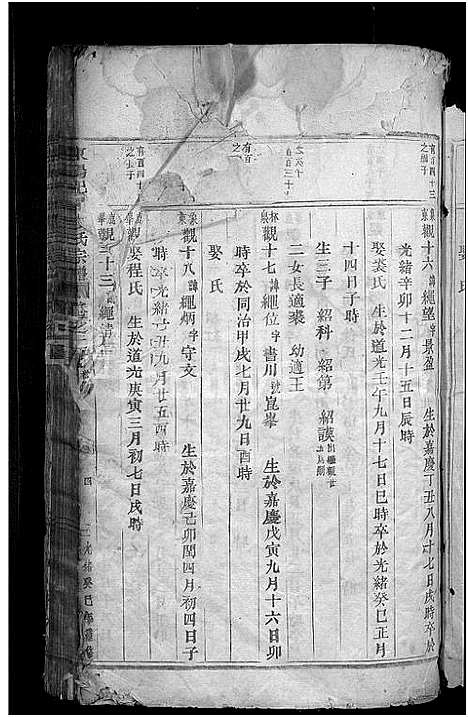 有百四十三之繼子
泉東觀十六諱繩望字景盈 生於嘉慶丁丑八月十七日戌時卒於
光緒辛卯十二月十五日辰時
娶裘氏 生於道光壬午九月十七日巳時卒於光緒癸巳正月
十四日子時
生三子 紹科 紹第 紹謨
二女長適裘 幼適王
觀十七諱繩位字書川號崑峯 生於嘉慶戊寅九月十六日卯
時卒於同治甲戌七月廿九日酉時
娶 氏
有百
觀十八諱繩炳字守文 生於嘉慶己卯閏四月初四日子
時卒光緒 丑九月廿五酉時
娶程氏 生於道光庚寅三月初七日戌時
有百四十
之長子
觀二十三 繩
氏宗譜
四
光緒癸巳年重修